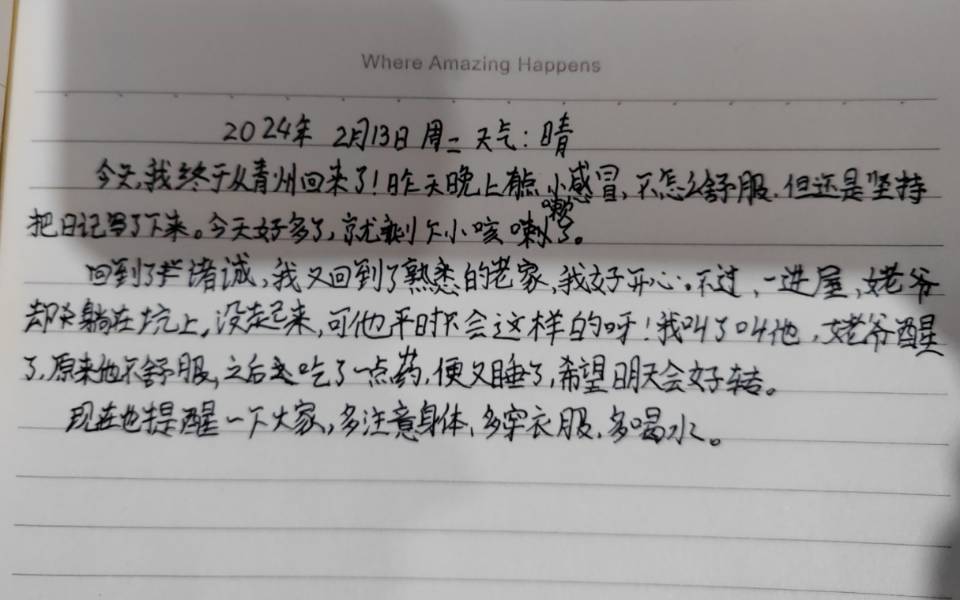 Where Amazing Happens
2024年 2月13日 周二 天气：晴
今天，我终于从青州回来了！昨天晚上有点小感冒，不怎么舒服，但还是坚持
把日记写了下来。今天好多了，就剩下小咳嗽了。
回到了诸诚，我又回到了熟悉的老家，我好开心。不过，一进屋，姥爷
却躺在坑上，没起来，可他平时不会这样的呀！我叫了叫他，姥爷醒
了，原来他不舒服，之后吃了一点药，便又睡了，希望明天会好转。
现在也提醒一下大家，多注意身体，多穿衣服，多喝水。